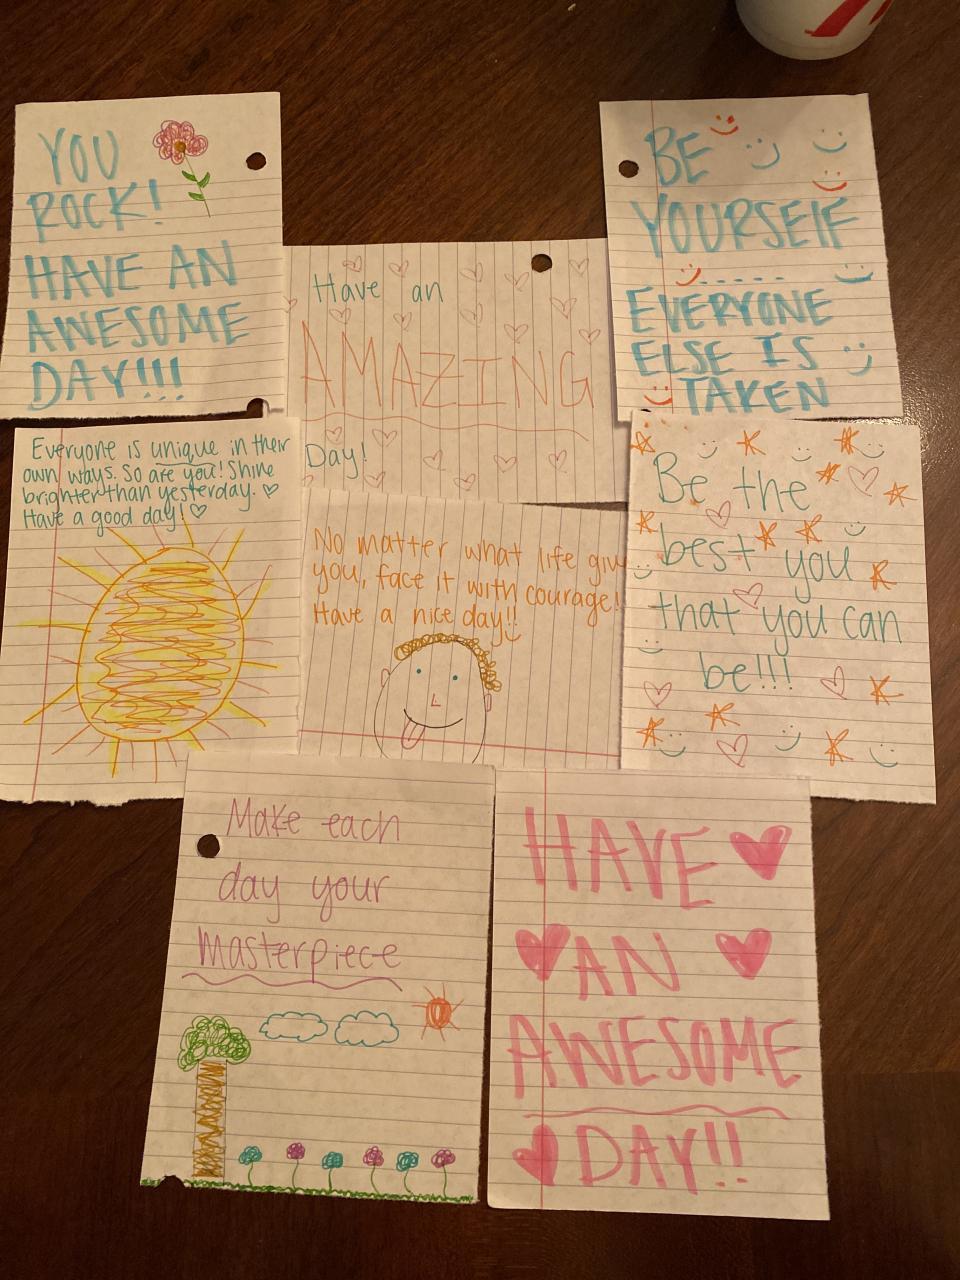 YOU
ROCK!
HAVE AN
AWESOME
DAY!!!
Have an
AMAZING
Day!
BE
YOURSELF
.....
EVERYONE
ELSE IS
TAKEN
Everyone is unique in their
own ways. So are you! Shine
brighter than yesterday. ♡
Have a good day! ♡
No matter what life giv
you, face it with courage!
Have a nice day!!
Be the
best you
that you can
be!!!
Make each
day your
masterpiece
HAVE
AN
AWESOME
DAY!!